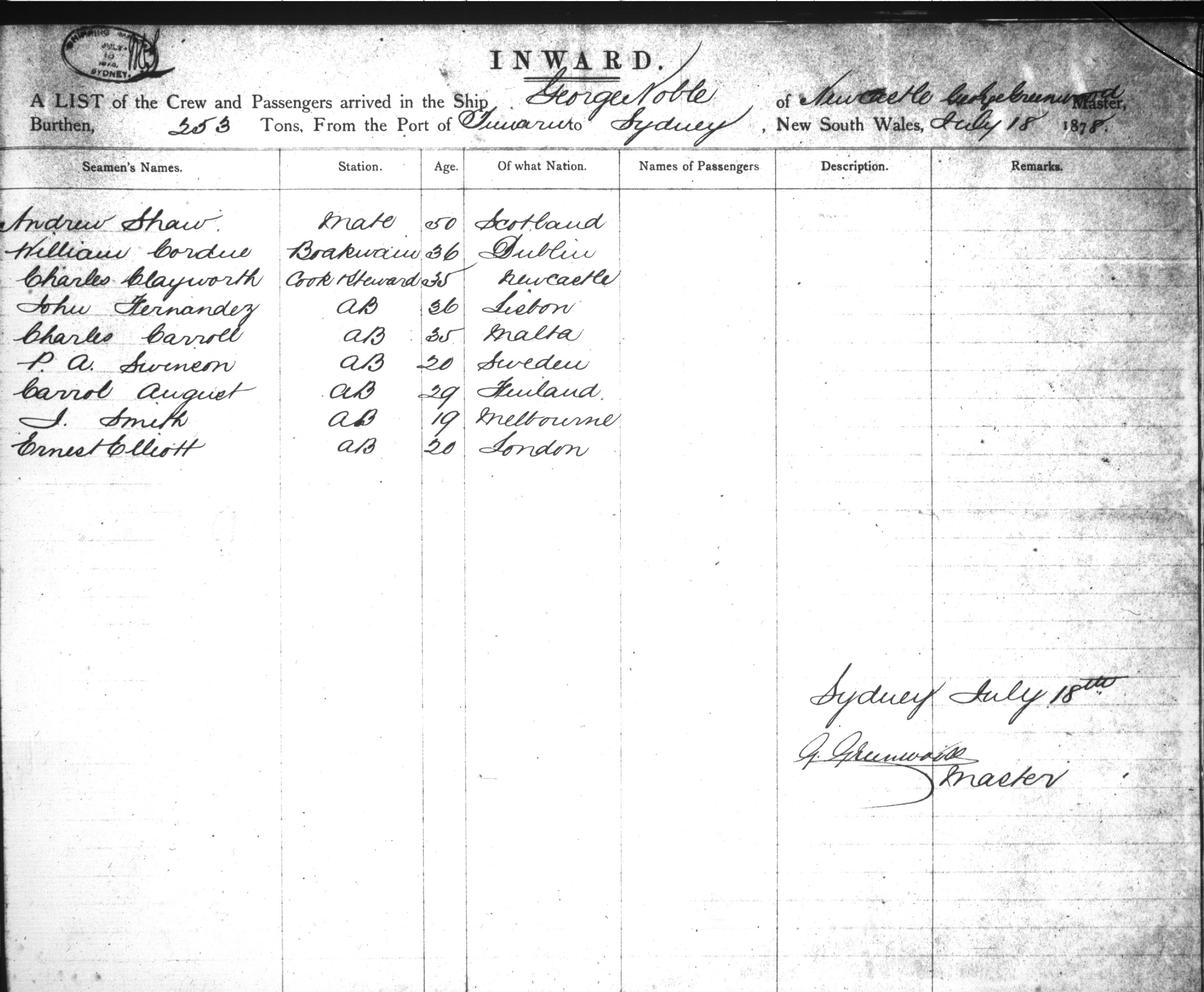 SHIPPING
SYDNEY.
INWARD.
A LIST of the Crew and Passengers arrived in the Ship George Noble of Newcastle George Greenwood Master,
Burthen, 253 Tons, From the Port of Timaru to Sydney, New South Wales, July 18 1878.
Seamen's Names. Station. Age. Of what Nation. Names of Passengers Description. Remarks.
Andrew Shaw. Mate 50 Scotland
William Cordue Boatswain 36 Dublin
Charles Clayworth Cook & Steward 35 Newcastle
John Fernandez AB 36 Lisbon
Charles Carroll AB 35 Malta
P. A. Swenson AB 20 Sweden
Carrol August AB 29 Finland.
J. Smith AB 19 Melbourne
Ernest Elliott AB 20 London
Sydney July 18th
G. Greenwood
Master